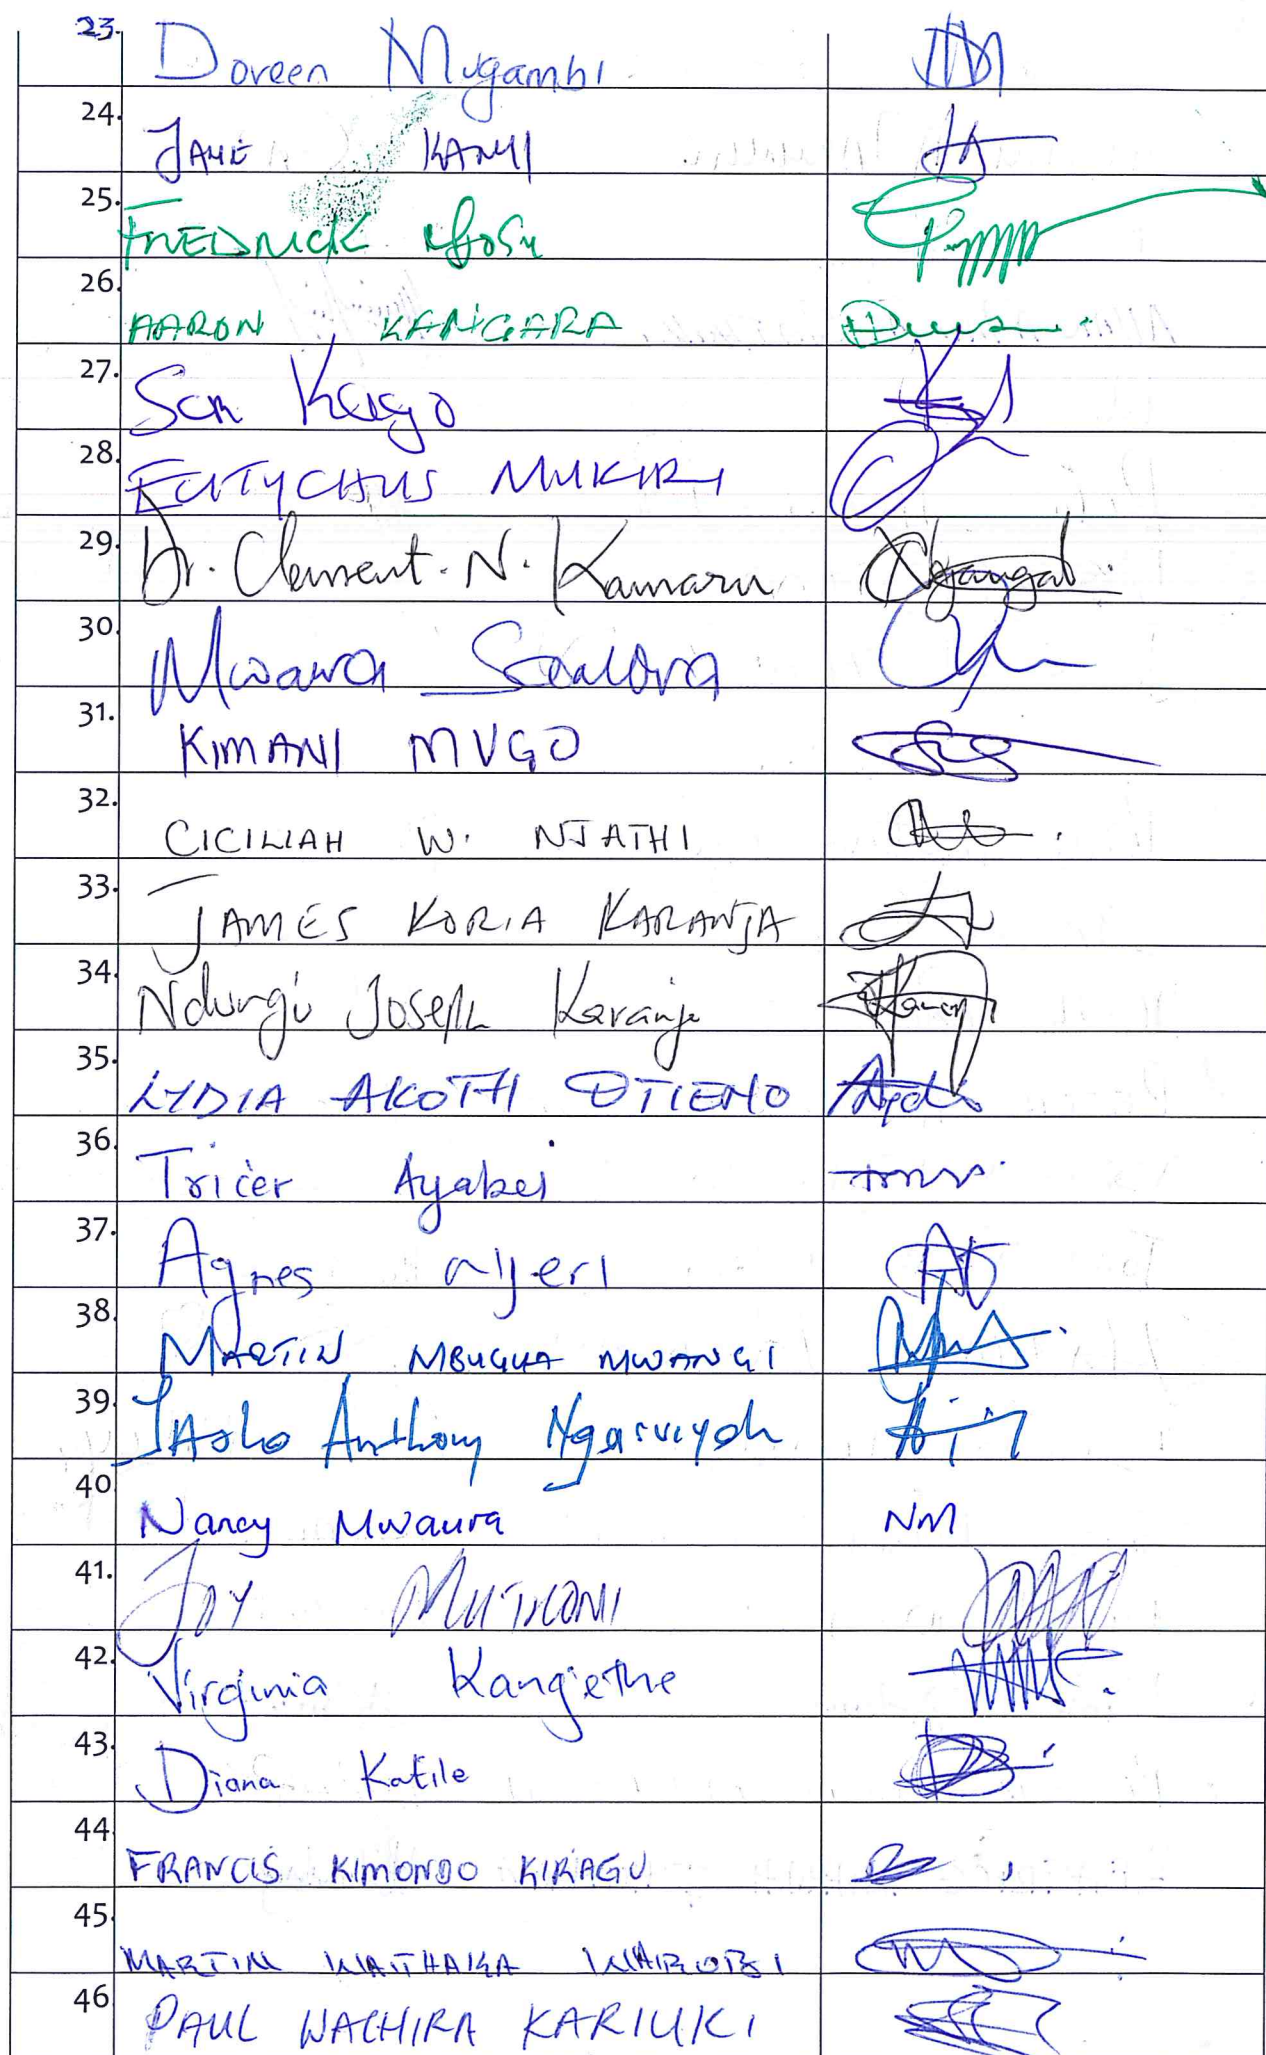 23. Doreen Mugambi
24. JANE KANYI
25. FREDRICK
26. AARON KANGARA
27. Sam Kago
28. EUTYCHUS MUKIRI
29. Dr. Clement. N. Kamaru
30. Mwawra
31. KIMANI MUGO
32. CICILIAH W. NJATHI
33. JAMES KORIA KARANJA
34. Ndung'u Joseph Karanja
35. LYDIA AKOTH OTIENO
36. Tricer Ayabei
37. Agnes Njeri
38. MARTIN MBUGUA MWANGI
39. Anthony
40. Nancy Mwaura NM
41. JOY MUTHONI
42. Virginia Kang'ethe
43. Diana Katile
44. FRANCIS KIMONDO KIRAGU
45. MARTIN WAITHAKA WAIROBI
46. PAUL WACHIRA KARIUKI